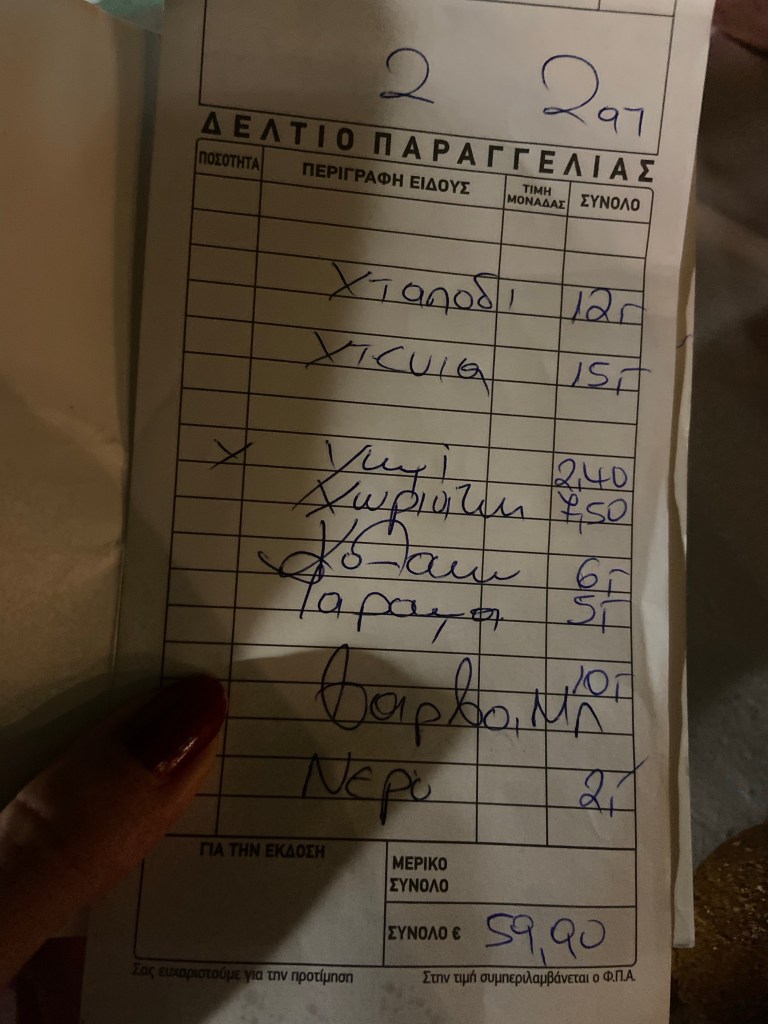 2 2 97
ΔΕΛΤΙΟ ΠΑΡΑΓΓΕΛΙΑΣ
ΠΟΣΟΤΗΤΑ ΠΕΡΙΓΡΑΦΗ ΕΙΔΟΥΣ ΤΙΜΗ ΜΟΝΑΔΑΣ ΣΥΝΟΛΟ
Χταποδι 12
Χτενια 15
Χ Ψωμί 2,40
Χωριατικη 7,50
Κολ 6
Ταραμα 5
10
Βαρβα, ΜΛ
Νερό 2
ΓΙΑ ΤΗΝ ΕΚΔΟΣΗ
ΜΕΡΙΚΟ ΣΥΝΟΛΟ
ΣΥΝΟΛΟ € 59,90
Σας ευχαριστούμε για την προτίμηση Στην τιμή συμπεριλαμβάνεται ο Φ.Π.Α.